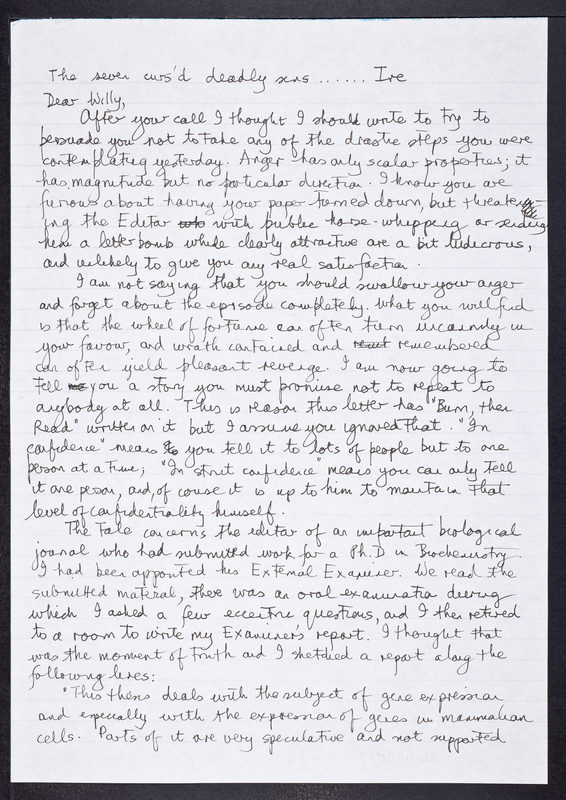 The seven curs'd deadly sins ...... Ire
Dear Willy,
After your call I thought I should write to try to
persuade you not to take any of the drastic steps you were
contemplating yesterday. Anger has only scalar properties; it
has magnitude but no particular direction. I know you are
furious about having your paper turned down, but threaten-
ing the Editor with public horse-whipping or sending
him a letter bomb while clearly attractive are a bit ludicrous,
and unlikely to give you any real satisfaction.
I am not saying that you should swallow your anger
and forget about the episode completely. What you will find
is that the wheel of fortune can often turn uncannily in
your favour, and wrath contained and remembered
can often yield pleasant revenge. I am now going to
tell you a story you must promise not to repeat to
anybody at all. This is reason this letter has "Burn, then
Read" written on it but I assume you ignored that. "In
confidence" means you tell it to lots of people but to one
person at a time; "In strict confidence" means you can only tell
it one person, and, of course it is up to him to maintain that
level of confidentiality himself.
The Tale concerns the editor of an important biological
journal who had submitted work for a Ph.D in Biochemistry.
I had been appointed his External Examiner. We read the
submitted material, there was an oral examination during
which I asked a few eccentric questions, and I then retired
to a room to write my Examiner's report. I thought that
was the moment of truth and I sketched a report along the
following lines:
"This thesis deals with the subject of gene expression
and especially with the expression of genes in mammalian
cells. Parts of it are very speculative and not supported